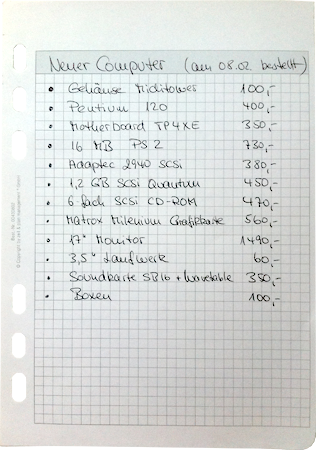 Neuer Computer (am 08.02 bestellt)
• Gehäuse Miditower 100,-
• Pentium 120 400,-
• Motherboard TP4XE 350,-
• 16 MB PS 2 730,-
• Adaptec 2940 SCSi 380,-
• 1,2 GB SCSi Quantum 450,-
• 6 fach SCSi CD-ROM 470,-
• Matrox Milenium Grafikkarte 560,-
• 17" Monitor 1490,-
• 3,5" Laufwerk 60,-
• Soundkarte SB16 + Wavetable 350,-
• Boxen 100,-